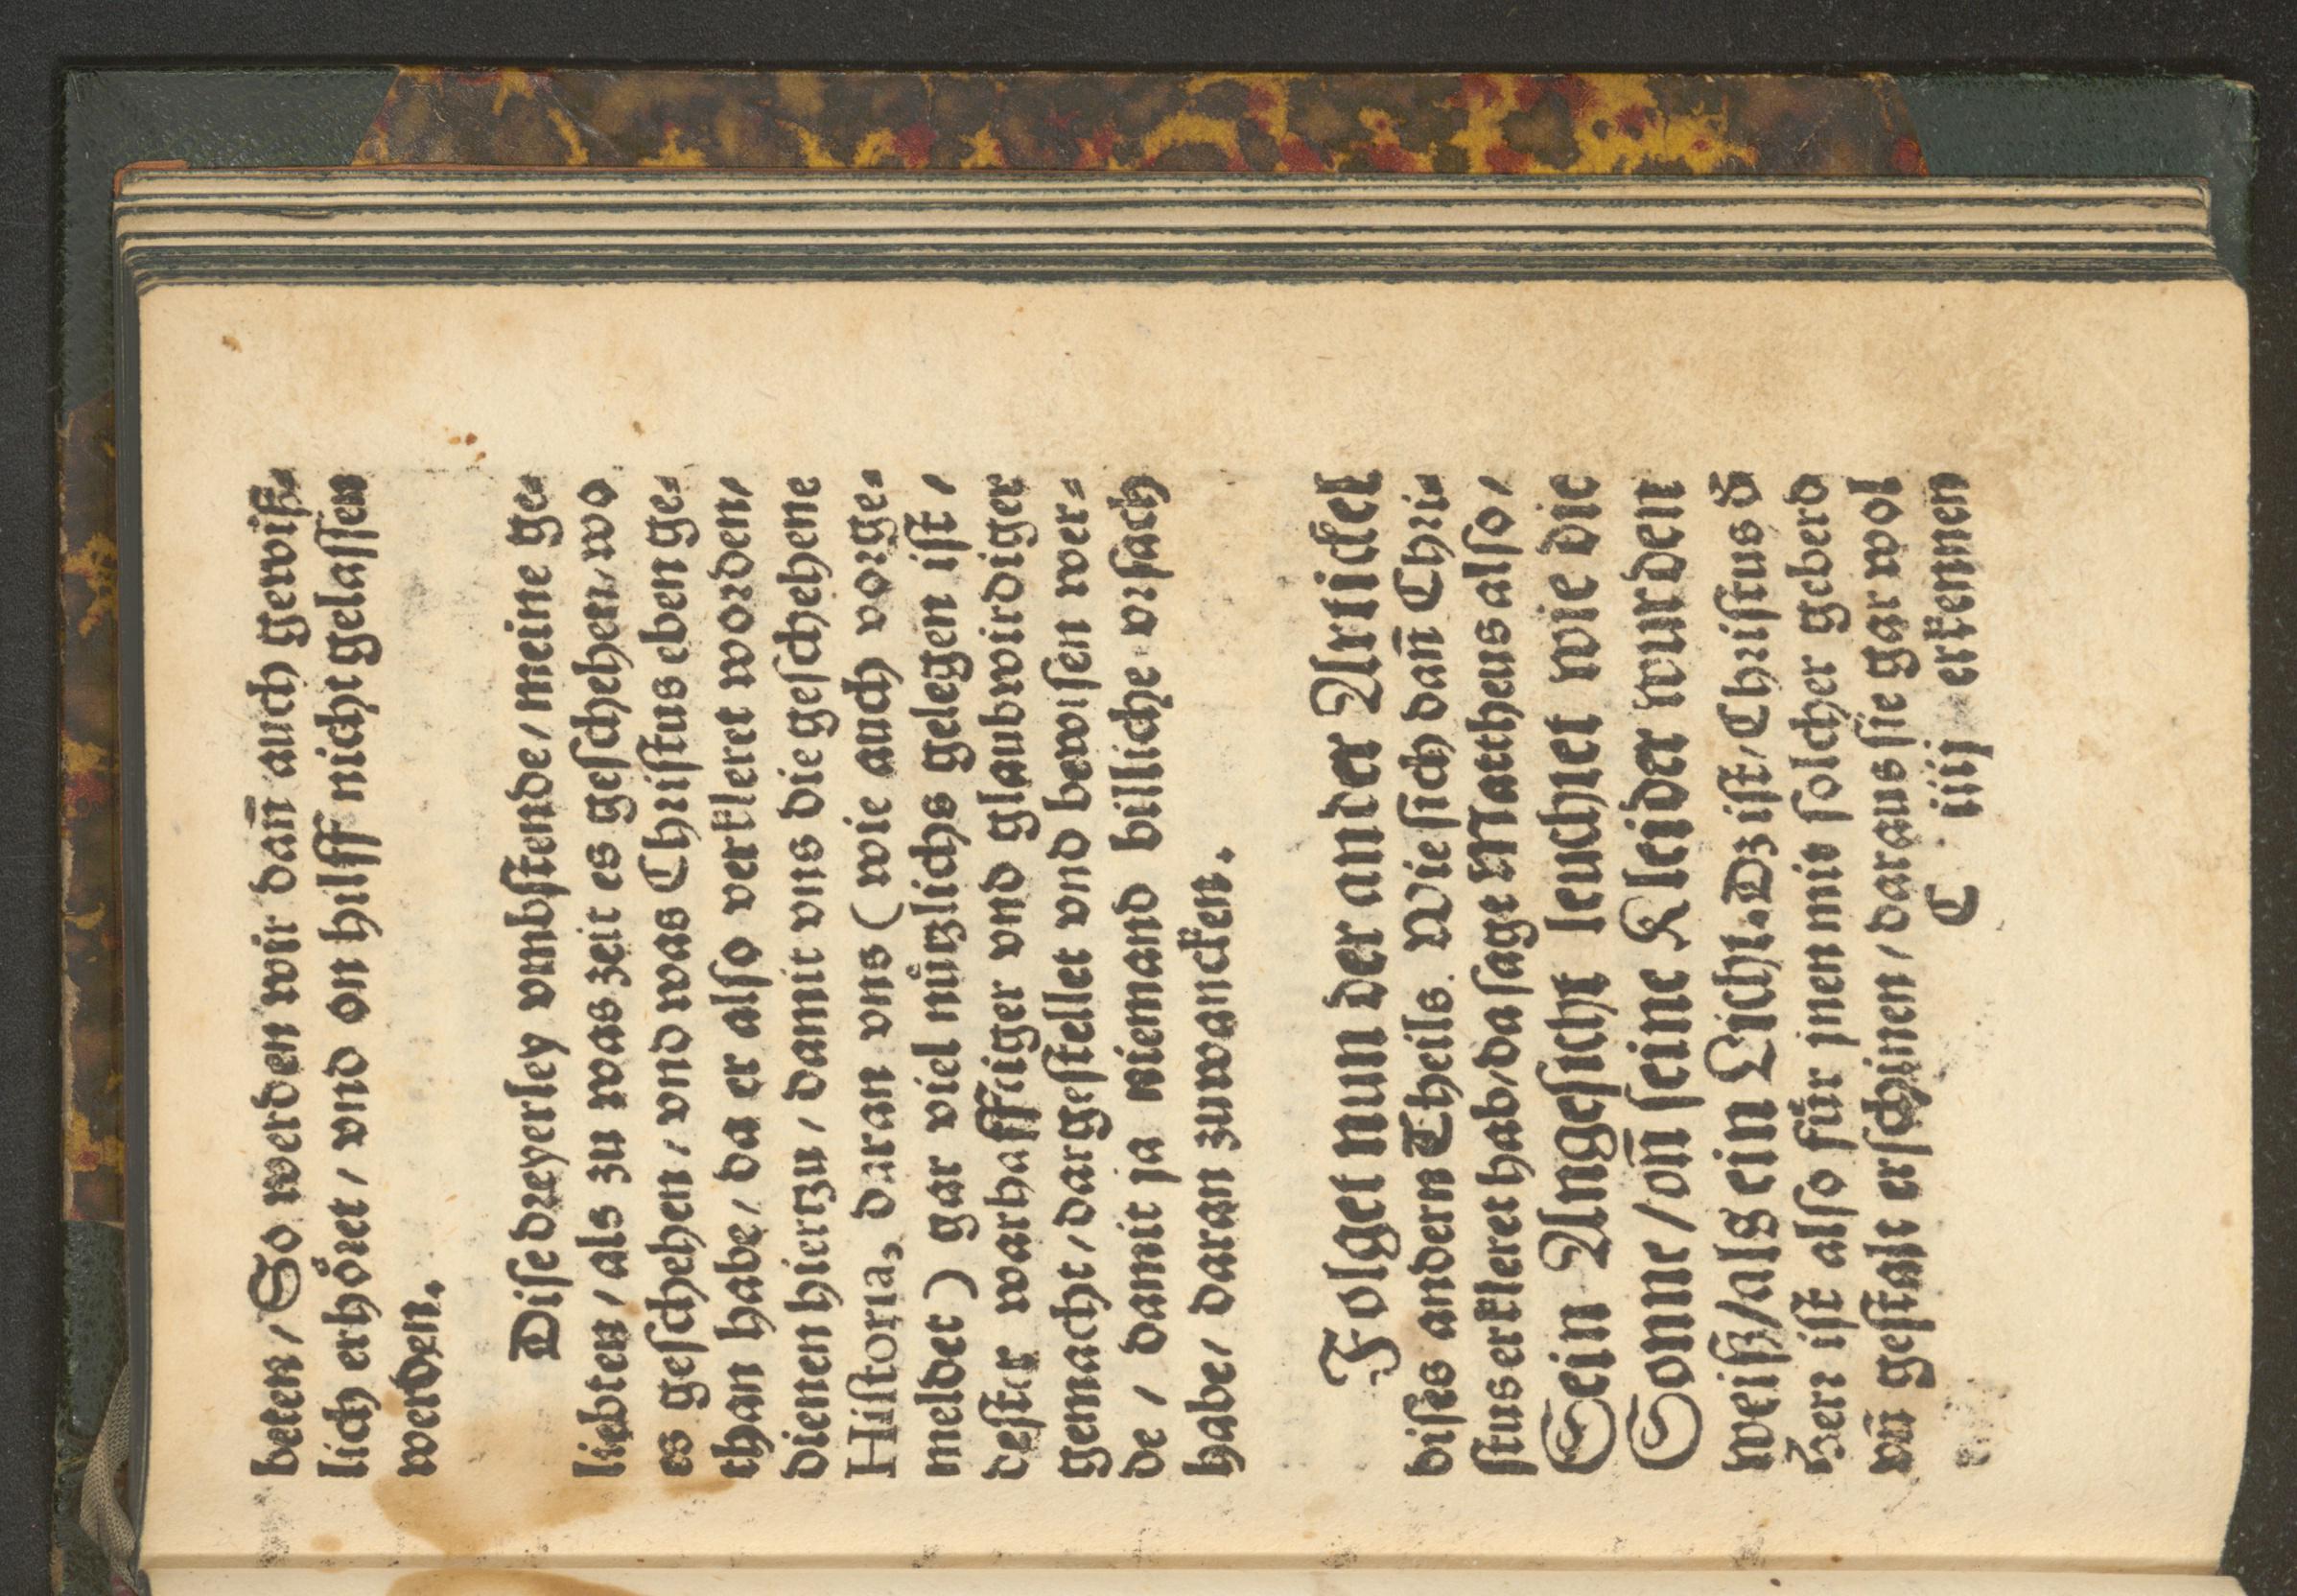 beten / So werden wir dañ auch gewiß⸗
lich erhoͤret / vnd on hilff nicht gelassen
werden.
Dise dreyerley vmbstende / meine ge⸗
liebten / als zu was zeit es geschehen, wo
es geschehen / vnd was Christus eben ge⸗
than habe / da er also verkleret worden /
dienen hiertzu / damit vns die geschehene
Historia, daran vns ( wie auch vorge⸗
meldet ) gar viel nuͤtzlichs gelegen ist /
dester warhafftiger vnd glaubwirdiger
gemacht / dargestellet vnd bewisen wer⸗
de / damit ja niemand billiche vrsach
habe / daran zuwancken.
Folget nun der ander Artickel
dises andern Theils. Wie sich dañ Chri⸗
stus erkleret hab / da sagt Mattheus also /
Sein Angesicht leuchtet wie die
Sonne / vñ seine Kleider wurden
weiß / als ein Licht. Dz ist / Christus d̕
Herr ist also fuͤr jnen mit solcher geberd
vñ gestalt erschinen / daraus sie gar wol
C iiij erkennen